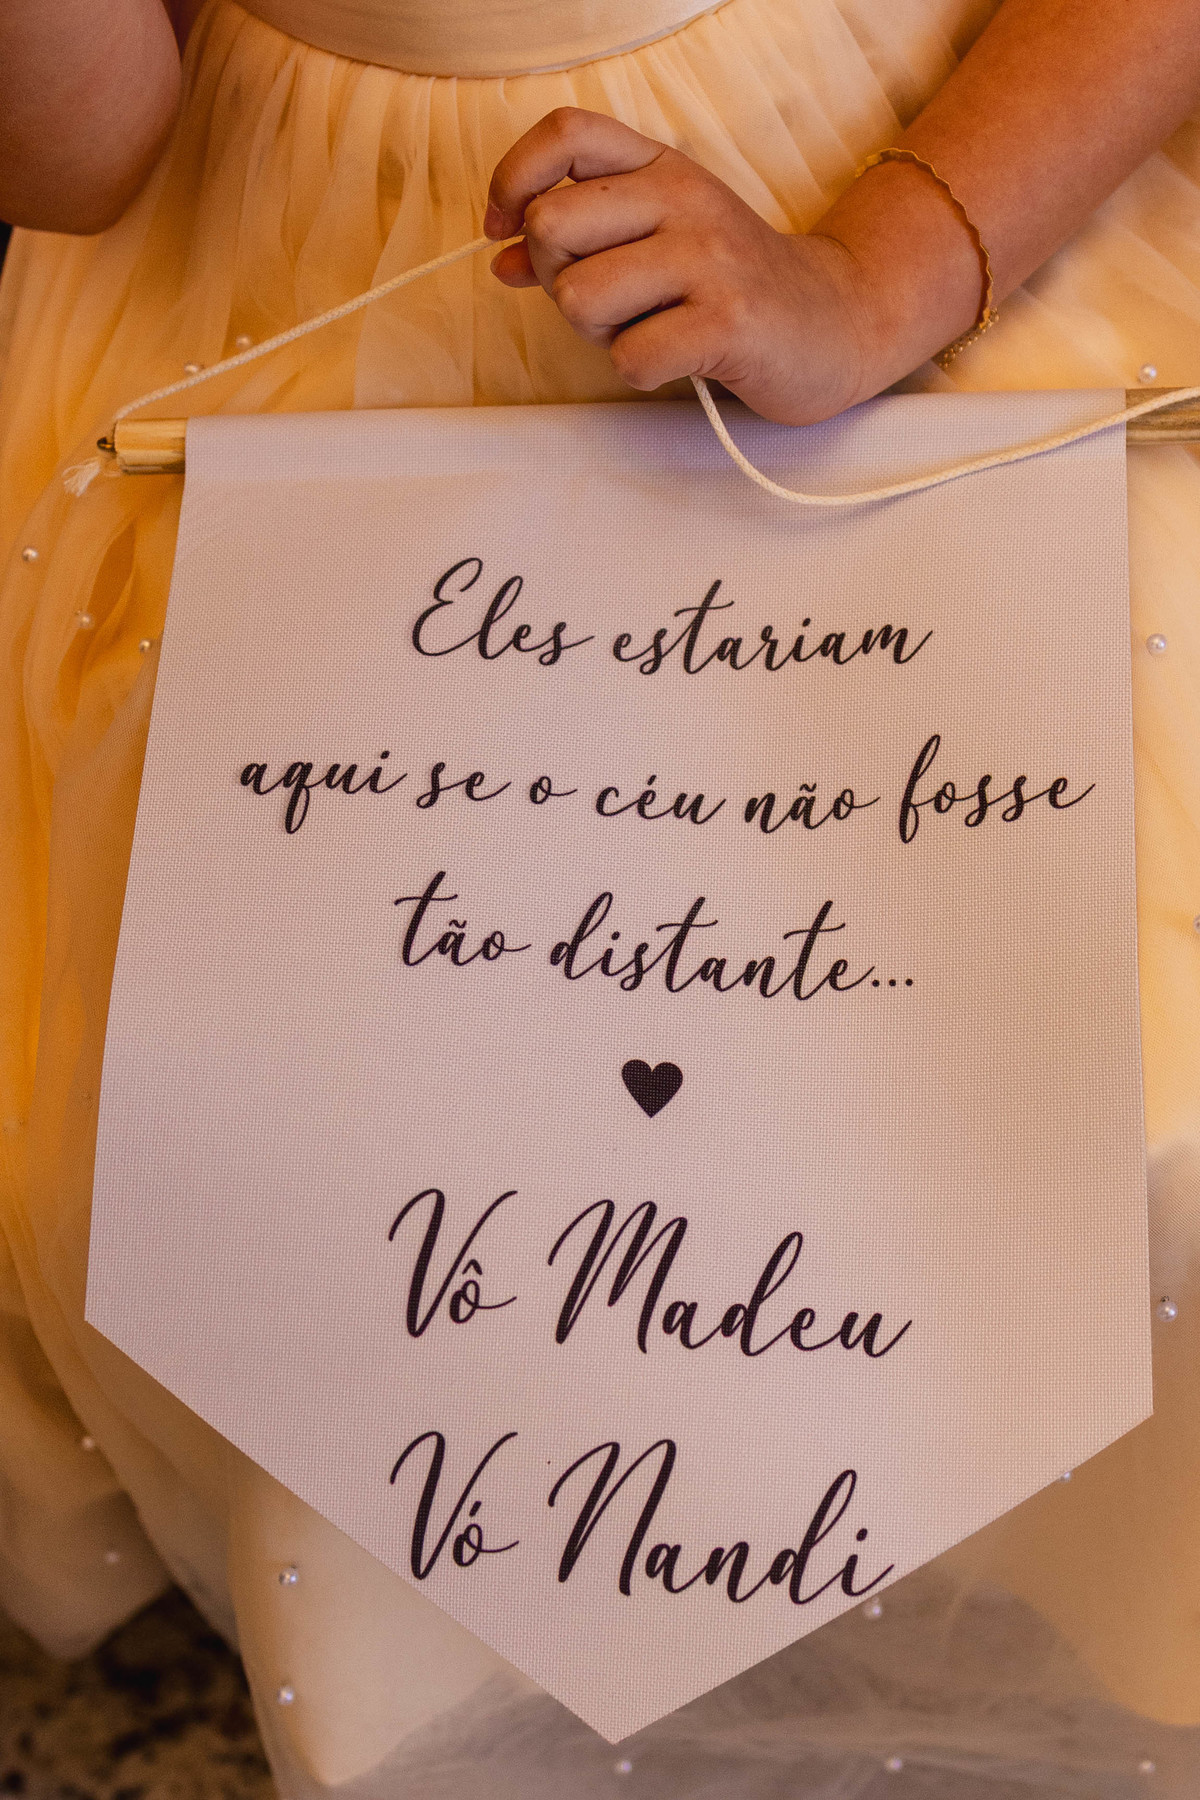 Eles estariam
aqui se o céu não fosse
tão distante...
Vô Madeu
Vó Nandi